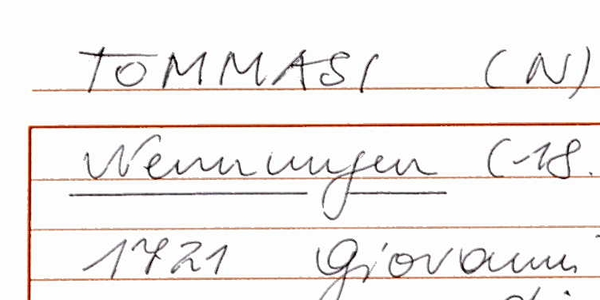 TOMMASI (N)
Nennungen (18.
1721 Giovanni